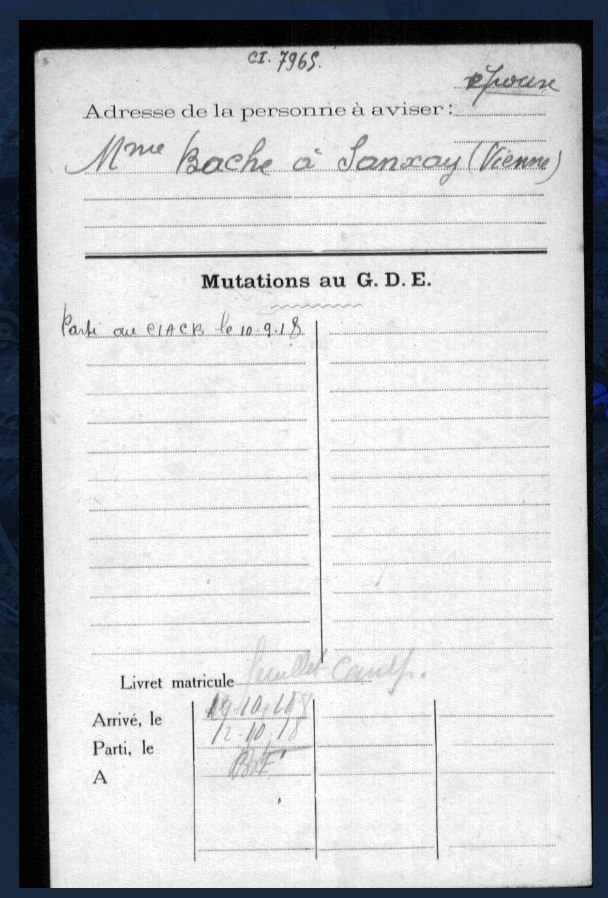 CI. 7965.
épouse
Adresse de la personne à aviser :
Mme Bache à Sanxay (Vienne)
Mutations au G. D. E.
Parti au CIACB le 10.9.18
Livret matricule feuillet
Arrivé, le 10.18
Parti, le 12.10.18
A